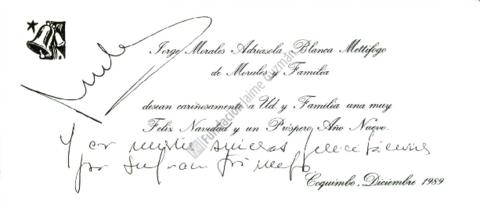 Jorge Morales Adriasola, Blanca Mettifogo
de Morales y Familia
desean cariñosamente a Ud y Familia una muy
Feliz Navidad y un Próspero Año Nuevo
Y con mis sinceras felicitaciones
por su gran triunfo
Coquimbo, Diciembre 1989
Fundación Jaime Guzmán